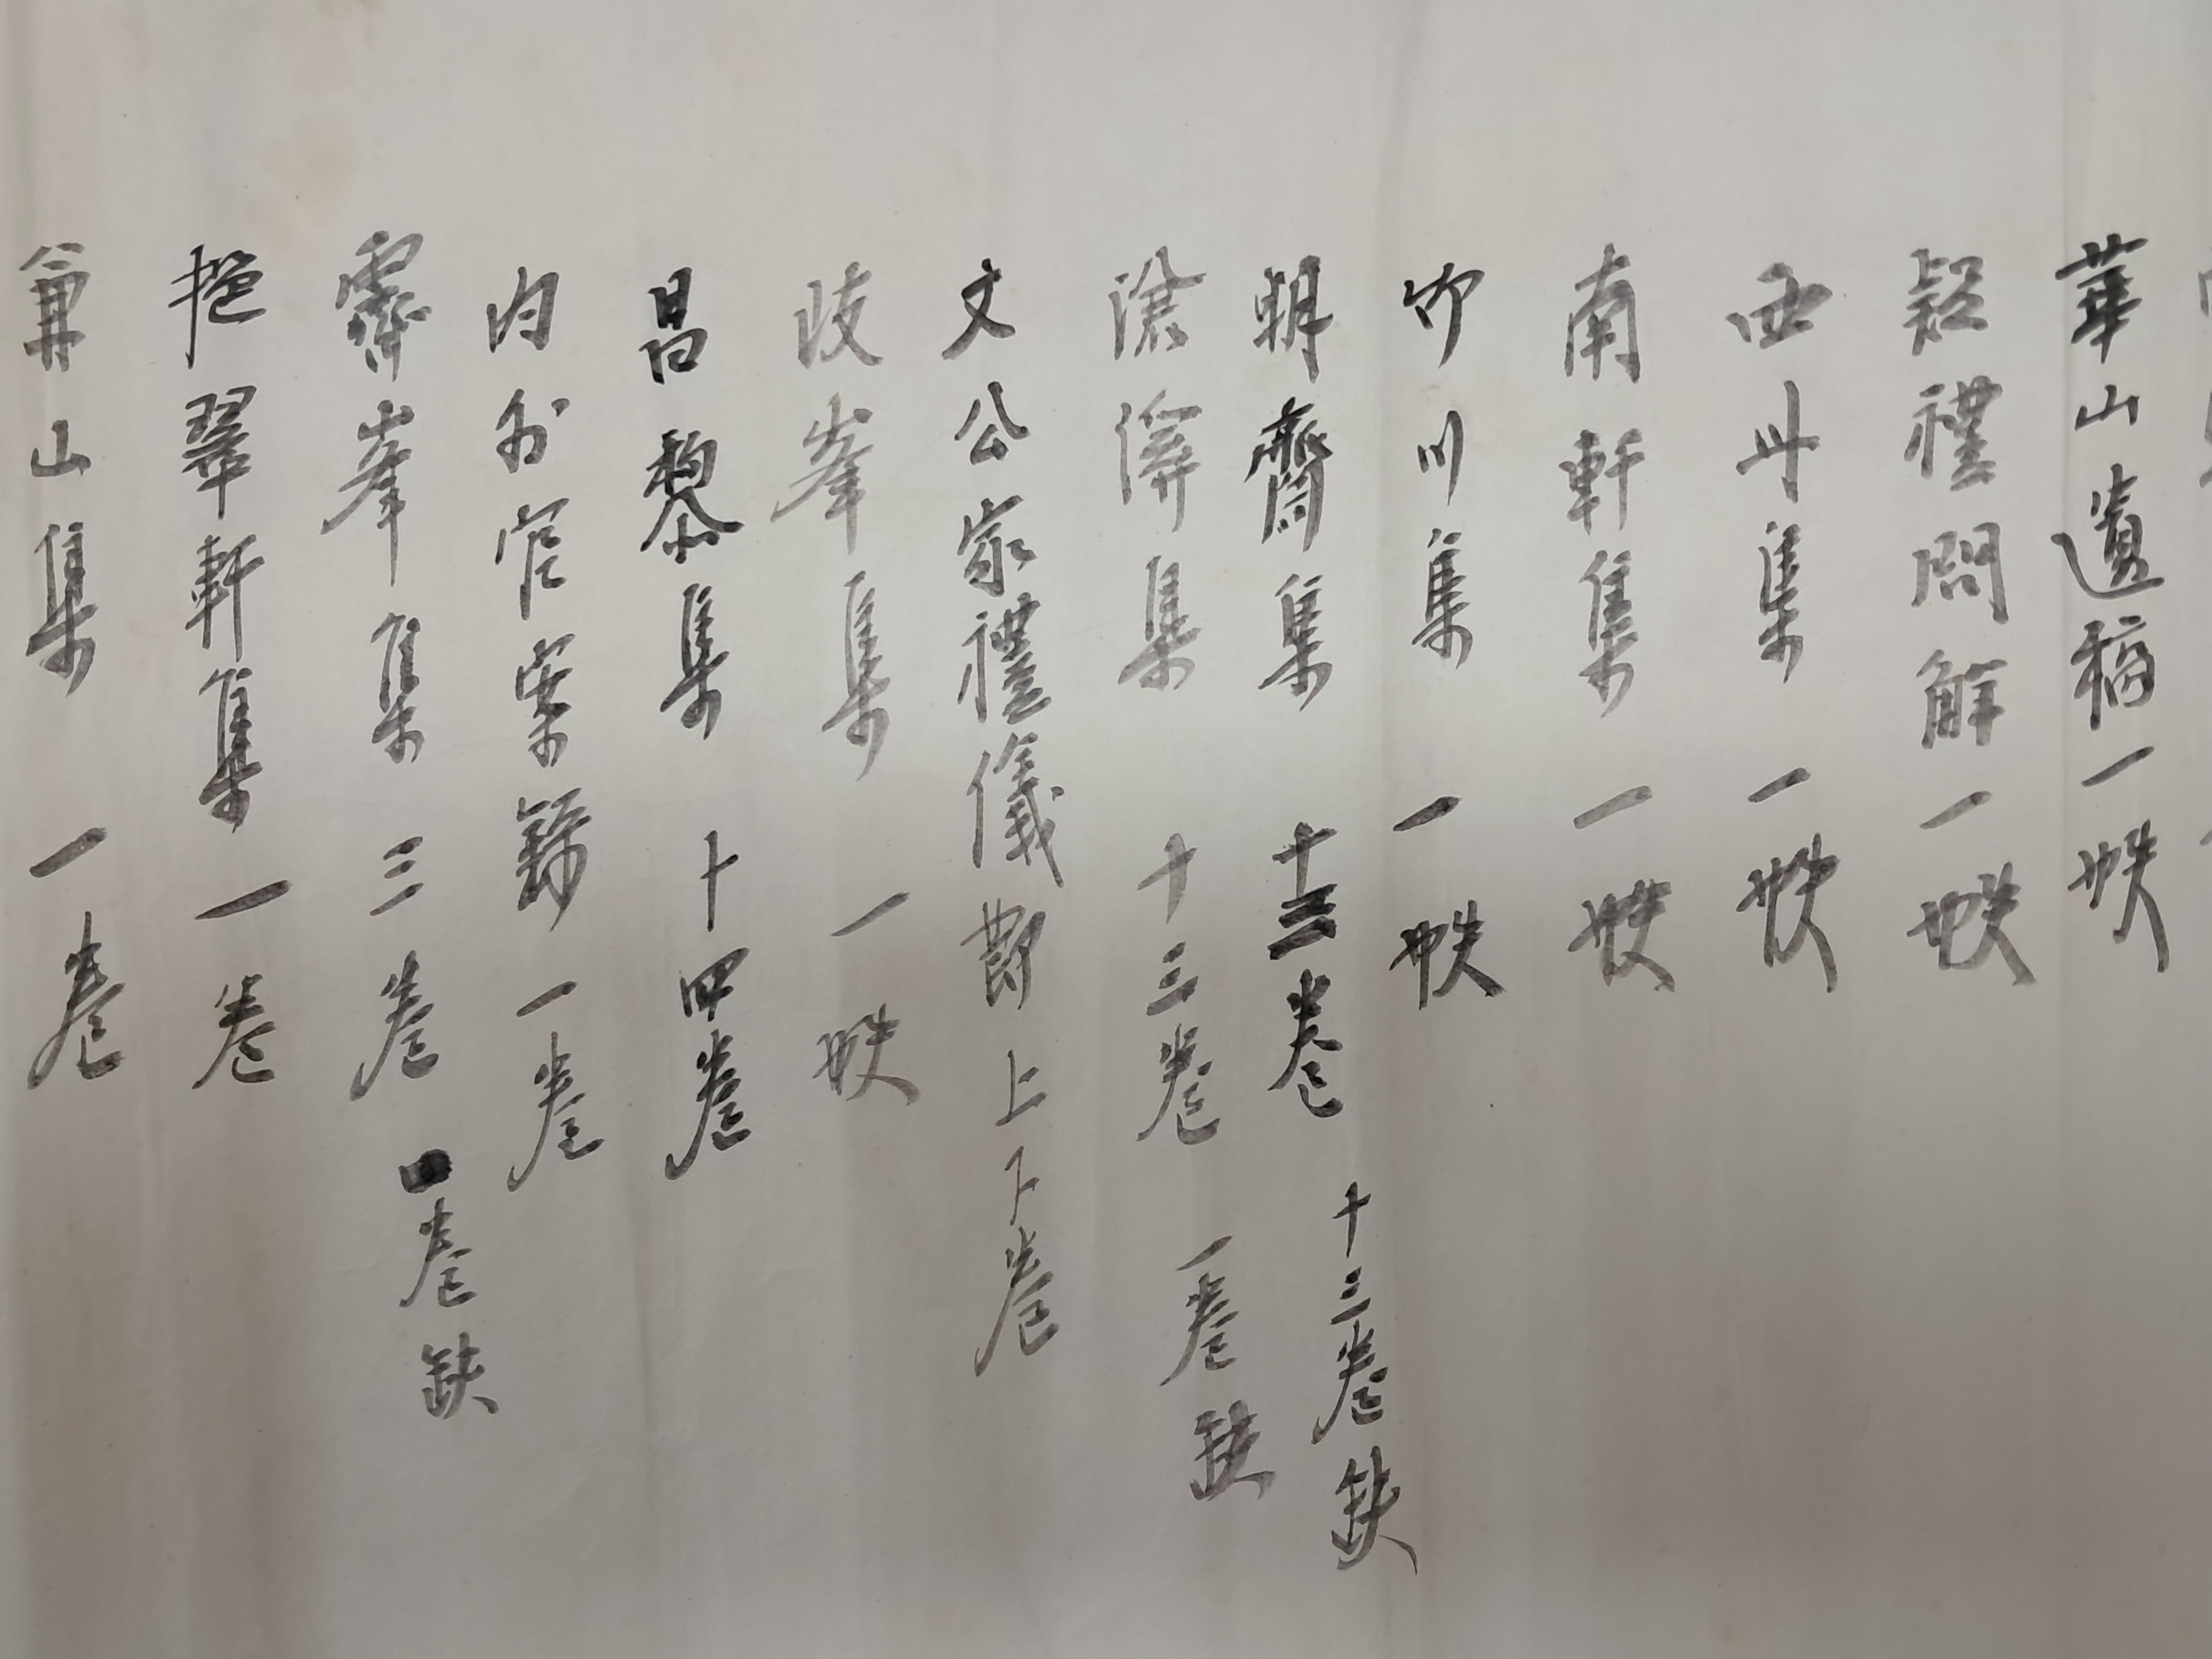 華山遺稿一帙
疑禮問解一帙
西丹集一帙
南軒集一帙
竹川集一帙
明齋集十三卷 十三卷缺
滄溟集十三卷 一卷缺
文公家禮儀節上下卷
岐峯集一帙
昌黎集十四卷
內外官案錄一卷
霽峯集三卷 四卷缺
挹翠軒集一卷
弇山集一卷